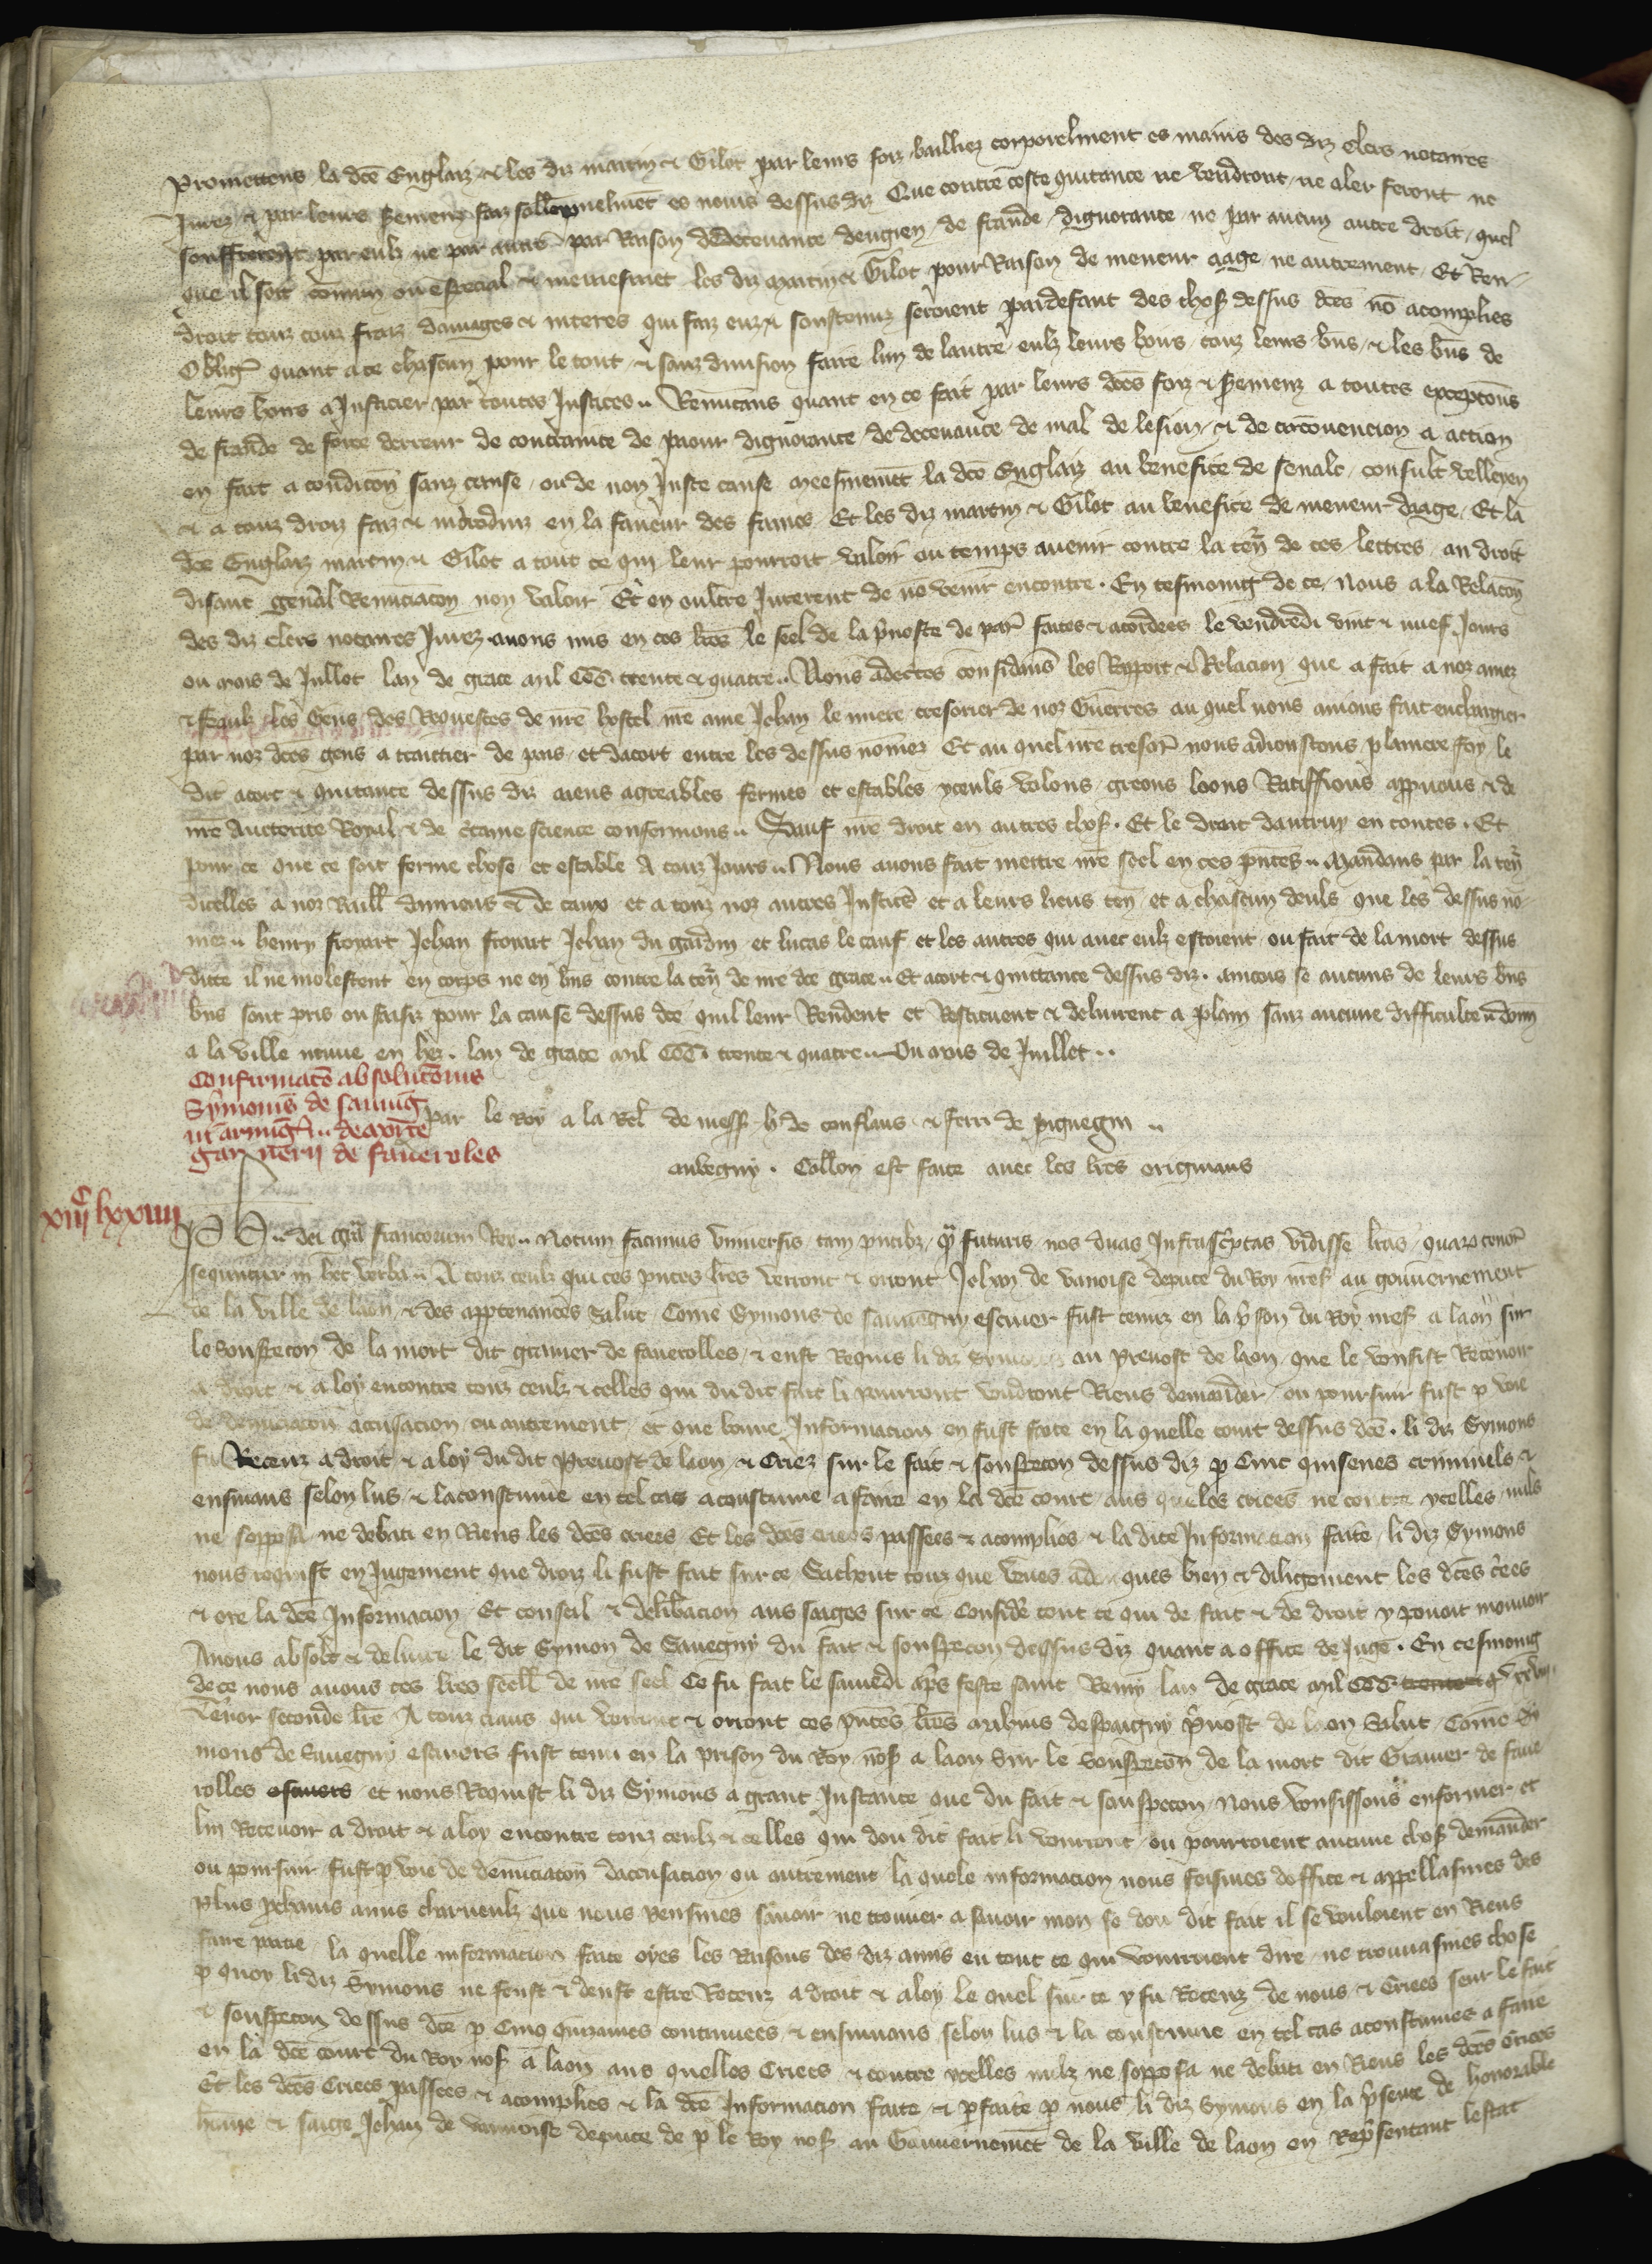 Promettens la dce Englaiz & les diz martin & Gilot par leurs foiz bailliez corporelment es mains des diz clers notaires
Jurez & par leurs sermenz faiz sollempnelment es noms dessus diz Que contre ceste quitance ne vendront ne aler feront ne
soufferront par eulz ne par autre par Raison de decevance dengien de fraude dignorance ne par aucun autre droit quel
que il soit commun ou especial & meismement les diz martin & Gilot pour Raison de meneur aage ne autrement Et Ren
droit touz couz fraiz damages & interes qui faiz euz & soustenuz seroient par defaut des choses dessus dces no acomplies
Oblig quant a ce chascun pour le tout & sanz division faire lun de lautre eulz leurs hoirs touz leurs bns & les bns de
leurs hoirs a Justicier par toutes Justices Renuncans quant en ce fait par leurs dces foiz & sermenz a toutes exceptons
de fraude de force derreur de contrainte de paour dignorance de decevance de mal de lesion & de circonvencion a action
en fait a condicon sanz cause ou de non Juste cause meesmement la dce Englaiz au benefice de senat consult velleyen
& a touz droiz faiz & introduiz en la faveur des fames Et les diz martin & Gilot au benefice de meneur daage Et la
dce Englaiz martin & Gilot a tout ce qui leur pourroit valoir ou temps avenir contre la ten de ces lettres au droit
disant genal Renunciacon non valoir Et en oultre Jurerent de no venir encontre En tesmoing de ce Nous a la Relacon
des diz clers notaires Jurez avons mis en ces lres le seel de la pvoste de par faites & acordees le vendredi vint & nuef Jours
ou mois de Jullet lan de grace mil CCC trente & quatre Nous adecertes considans les Rapport & Relacion que a fait a noz amez
& feaulz les Gens des Requestes de nre hostel nre ame Jehan le mire tresorier de noz Guerres au quel nous avions fait enchargier
par noz dces gens a traictier de pais et dacort entre les dessus nomez Et au quel nre tresor nous adioustons planiere foy le
dit acort & quitance dessus diz aiens agreables fermes et estables yceuls volons greons loons Ratiffions appvons & de
nre Auctorite Royal & de ctaine science confermons Sauf nre droit en autres choses Et le droit dautruy en toutes Et
pour ce que ce soit ferme chose et estable A touz Jours Nous avons fait mettre nre seel en ces pntes Mandans par la ten
dicelles a noz Baill damiens & de caux et a touz noz autres Justic et a leurs lieus ten et a chascun deuls que les dessus no
mez henry froyart Jehan froyart Jehan du gardin et lucas le cauf et les autres qui avec eulz estoient ou fait de la mort dessus
ditte il ne molestent en corps ne en bns contre la ten de nre dce grace Et acort & quittance dessus diz aincois se aucuns de leurs bns
bns sont pris ou saisiz pour la cause dessus dce quil leur Rendent et Restituent & delivrent a plain sanz aucune difficulte donn
a la ville neuve en hez lan de grace mil CCC trente & quatre Ou mois de Juillet
Confirmaco absolucionis
Symonis de sauvig
ni armig de morte
garnerij de faverolles
par le Roy a la Rel de mess h de conflans & ferri de piquegni
aubegny Collon est faite avec les lres originaus
xiijc lxxiiij
Ph dei gra francorum Rex Notum facimus universis tam pntibz qm futuris nos duas Infrascptas vidisse lras quarum tenor
sequntur in hec verba A touz ceulz qui ces pntes lres verront & orront Jehan de vanoise depute du Roy nres au gouvernement
de la ville de laon & des apptenances Salut Come Symons de sauvegny escuier fust tenuz en la pson du Roy nres a laon sur
le souspecon de la mort dit grainer de faverolles & eust Requis li diz Symons au Prevost de laon que le vousist Recevoir
a droit & a loy encontre touz ceulz & celles qui du dit fait li pourront voudront Riens demander ou poursuir fust p voie
de denunciacon accusacion ou autrement et que bonne Informacion en fust faite en la quelle court dessus dce li diz Symons
fu Receuz a droit & a loy du dit Prevost de laon & Criez sur le fait & souspecon dessus diz p Cinc quisenes criminels &
ensivans selon lus & la coustume en tel cas acoustume a faire en la dce court aus queles criees ne contre ycelles nuls
ne sopposa ne debati en Riens les dces criees Et les dces criees passees & acomplies & la dite Informacion faite li diz Symons
nous requist en Jugement que droiz li fust fait sur ce Sachent touz que veues adecques bien & diligement les dces criees
& ore la dce Informacion Et conseil & delibacion aus saiges sur ce Considere tout ce qui de fait & de droit y povoit mouvoir
Avons absolt & delivre le dit Symon de Sauvegny du fait & souspecon dessus diz quant a office de Juge En tesmoing
de ce nous avons ces lres seell de nre seel Ce fu fait le samedi aps feste saint Remy lan de grace mil CCC
Tenor seconde lre A touz ciaus qui verront & orront ces pntes lres aubuis despaigny pvost de laon Salut Come Sy
mons de Sauvegny escuiers fust tenu en la prison du Roy nos a laon Sur le souspecon de la mort dit Grainer de fave
rolles escuiers et nous Requist li diz Symons a grant Instance que du fait & souspecon Nous vousissons enformer et
lui Recevoir a droit & a loy encontre touz ceulz & celles qui dou dit fait li vouroient ou pourroient aucune chose demander
ou poursuir fust p voie de denunciacon daccusacion ou autrement la quele informacion nous feismes doffice & appellasmes des
plus pchains amis charneulz que nous peusmes savoir ne trouver a savoir mon se dou dit fait il se vouloient en Riens
faire partie la quelle informacion faite oyes les Raisons des diz amis en tout ce qui vourrient dire ne trouvasmes chose
p quoy li diz Symons ne feust & deust estre Receuz a droit & a loy le quel sur ce y fu Receuz de nous & Criees seur le fait
& souspecon dessus dce p Cinq quizaines continuees & ensivans selon lus & la coustume en tel cas acoustumes a faire
en la dce court du Roy nos a laon aus quelles Criees & contre ycelles nulz ne sopposa ne debati en Riens les dces Criees
Et les dces Criees passees & acomplies & la dce Informacion faite & pfaite p nous li diz Symons en la psence de honorable
home & saige Jehan de vannoise depute de p le Roy nos au Gouvernemet de la ville de laon en Repsentant lestat